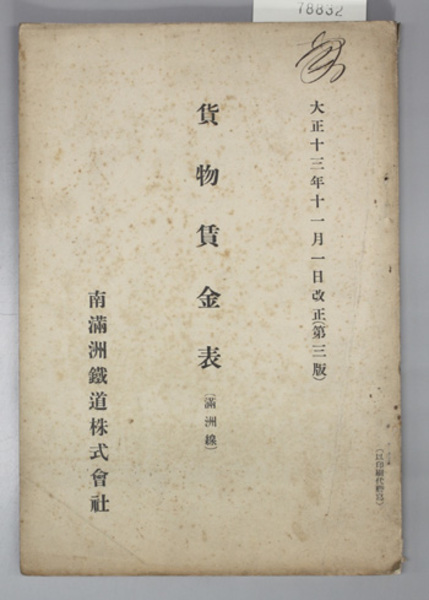 78832
大正十三年十一月一日改正(第三版)
貨物賃金表
(滿洲線)
南滿洲鐵道株式會社
(以印刷代謄寫)